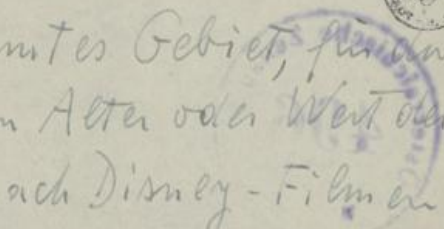 mtes Gebiet, für
Alter oder Wert der
ach Disney-Filmen